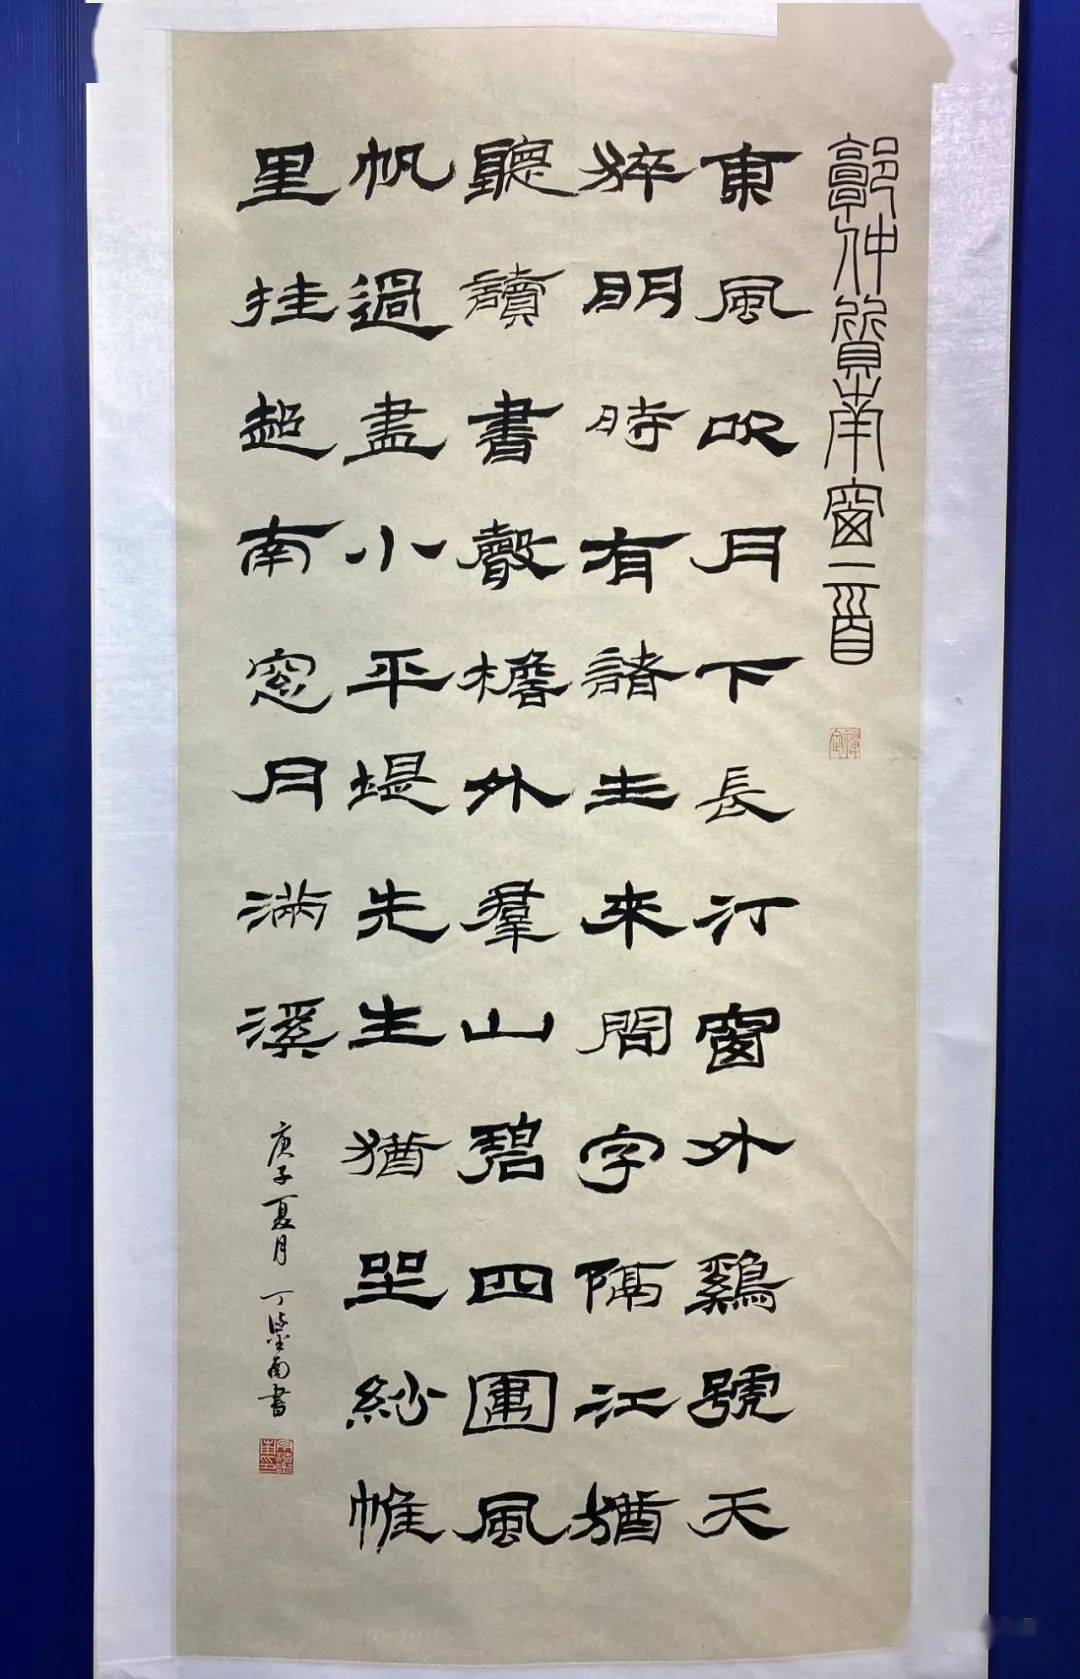 郭仲質南窗二首
東風吹月下長汀窗外鷄號天
猝明時有諸生來問字隔江猶
聽讀書聲檐外羣山碧四圍風
帆過盡小平堤先生猶坐紗帷
里挂起南窓月滿溪
庚子夏月 丁鑒南書